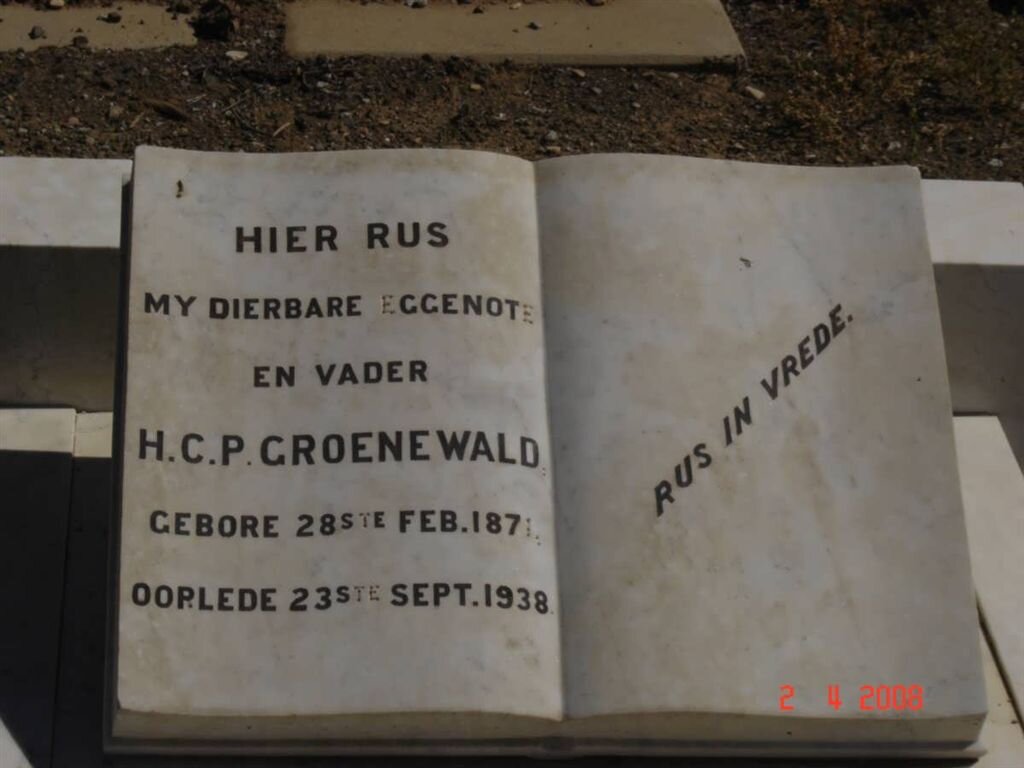 HIER RUS
MY DIERBARE EGGENOTE
EN VADER
H.C.P. GROENEWALD.
GEBORE 28STE FEB.1871.
OORLEDE 23STE SEPT.1938.
RUS IN VREDE.
2 4 2008